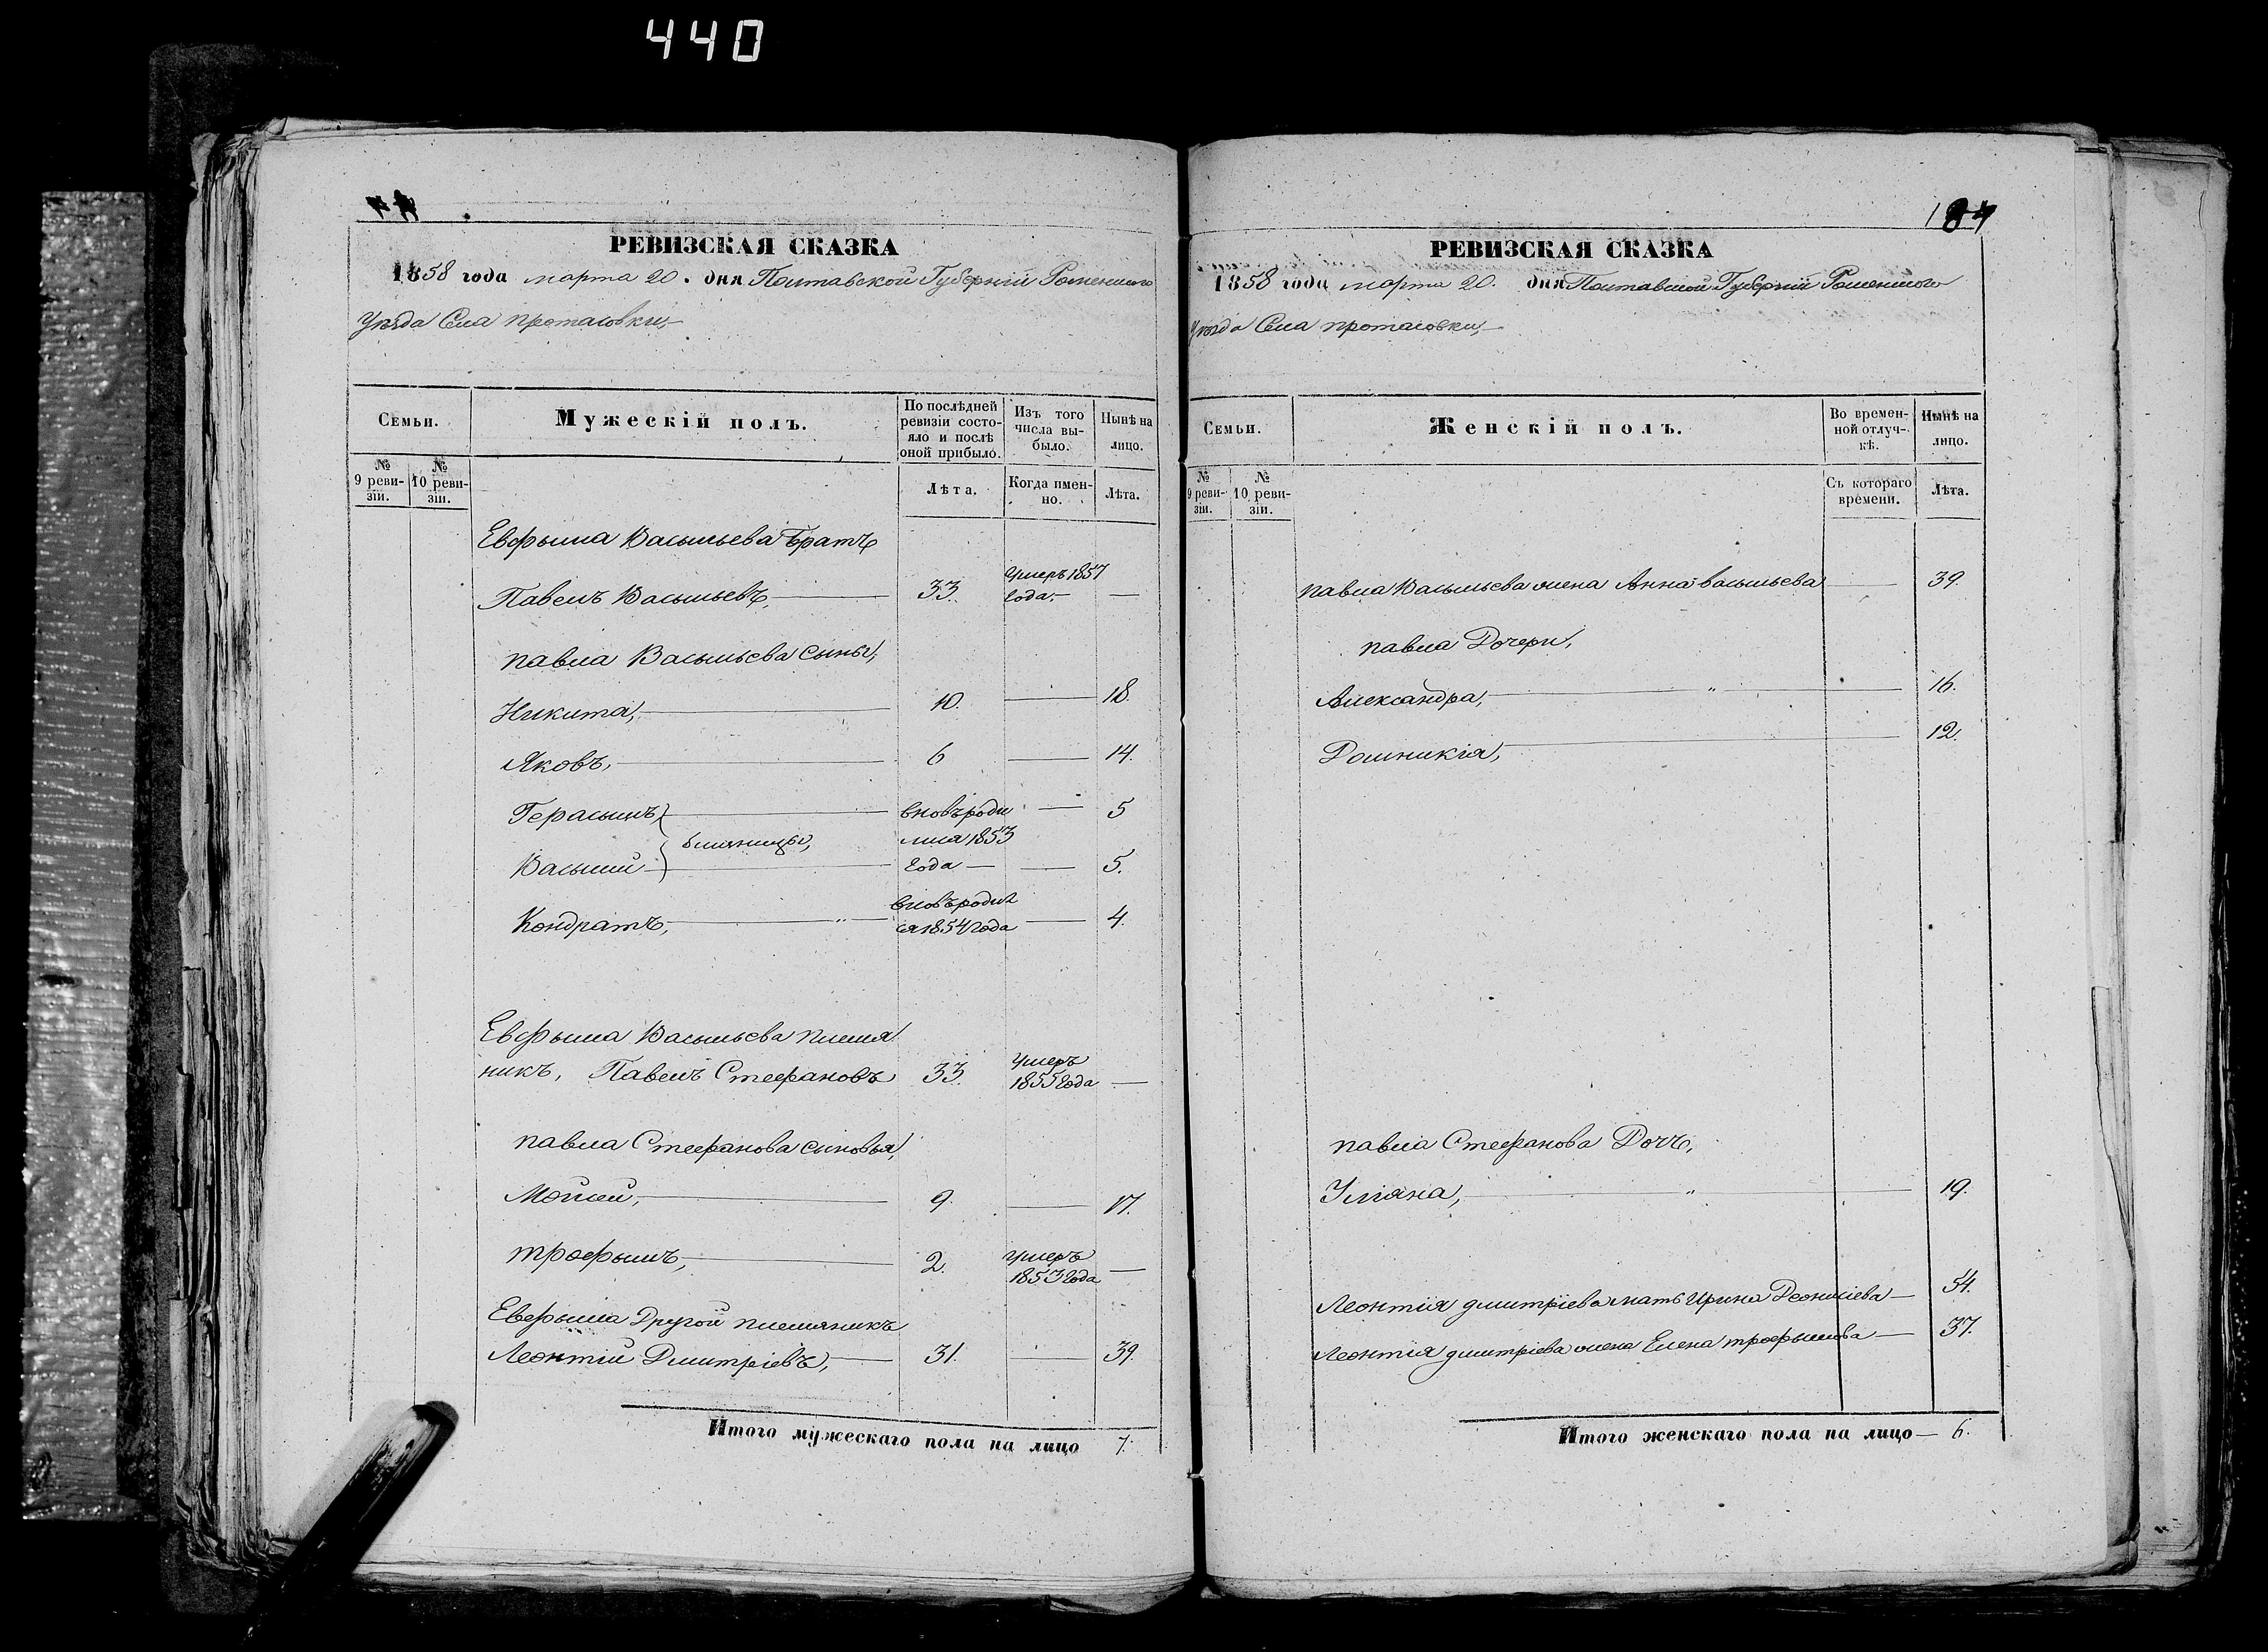 440
РЕВИЗСКАЯ СКАЗКА
1858 года марта 20. дня Полтавской Губерніи Роменского
Уѣзда Села протасовки,
Семьи.
Мужескій полъ.
По послѣдней ревизіи состояло и послѣ оной прибыло.
Изъ того числа выбыло.
Нынѣ на лицо.
№ 9 ревизіи.
№ 10 ревизіи.
Лѣта.
Когда именно.
Лѣта.
Евфыма Васыльева братъ
Павелъ Васыльевъ, 33. Умеръ 1857 года. —
павла Васыльева сыны,
Никита, 10. — 18.
Яковъ, 6 — 14.
Герасымъ } вновъ роди — 5
близницы, лися 1853
Васылій } года — — 5.
Кондратъ, вновъ родил
ся 1854 года — 4.
Евфыма Васыльева племя
никъ, Павелъ Стефановъ 33. Умеръ 1855 года —
павла Стефанова сыновья,
Мойсей, 9. — 17.
трофымъ, 2. умеръ 1853 года —
Евфыма Другой племяникъ
Леонтій Дмитріевъ, 31. — 39.
Итого мужескаго пола на лицо 7.
184
РЕВИЗСКАЯ СКАЗКА
1858 года марта 20. дня Полтавской Губерніи Роменского
Уѣзда Села протасовки,
Семьи.
Женскій полъ.
Во временной отлучкѣ.
Нынѣ на лицо.
№ 9 ревизіи.
№ 10 ревизіи.
Съ котораго времени.
Лѣта.
павла Васыльева жена Анна васыльева — 39.
павла Дочери,
Александра, — 16.
Домникія, — 12.
павла Стефанова Дочъ,
Уліяна, — 19.
Леонтія дмитріева мать Ирина Деонисіева — 54.
Леонтія дмитріева жена Елена трофымова — 37.
Итого женскаго пола на лицо — 6.